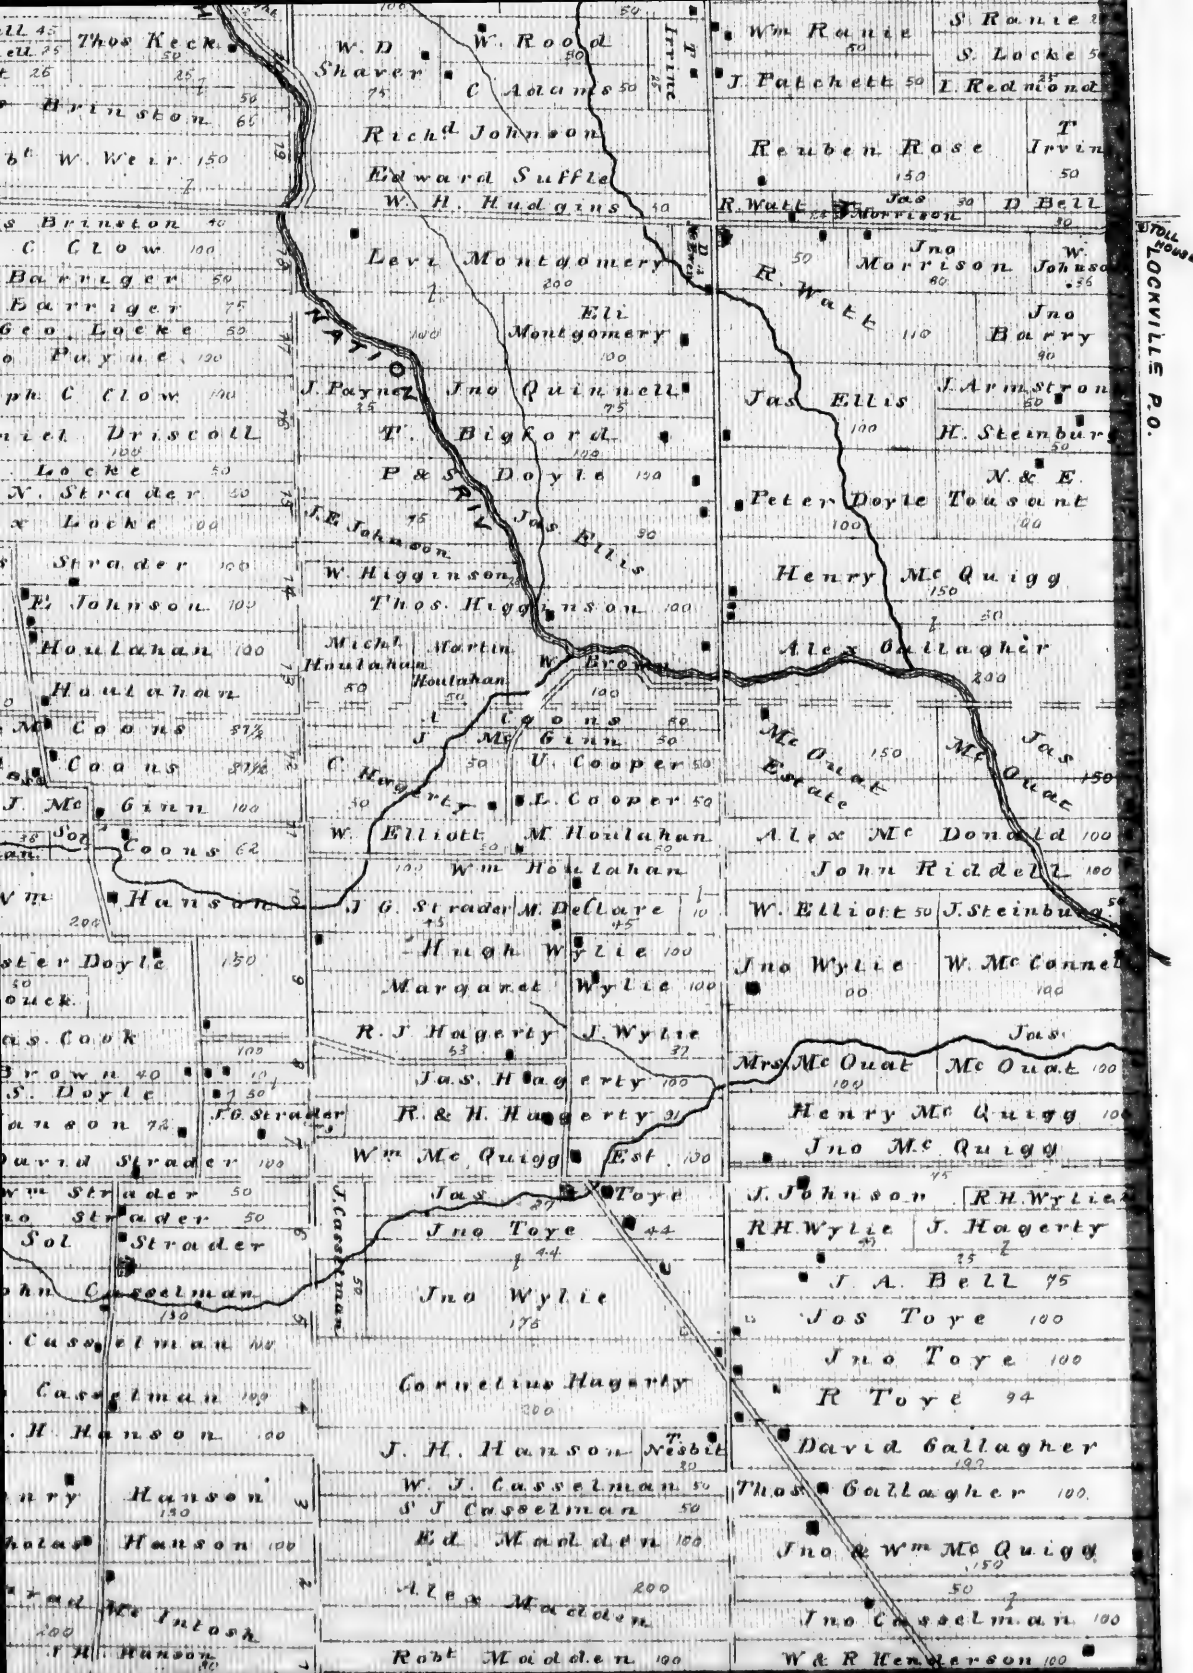 Thos Keck
50
25
Brinston 65
50
W. Weir 150
Brinston 40
C Clow 100
Barriger 50
Barriger 75
Geo. Locke 50
Payne 100
C Clow 100
Driscoll
100
Locke 50
N. Strader 50
Locke 100
Strader 100
E Johnson 100
Houlahan 100
Houlahan
Mc Coons 37½
Coons 37½
J. Mc Ginn 100
Sol
Coons 62
Wm Hanson
200
Doyle 150
50
ouck
as. Cook
100
Brown 40
S. Doyle 50
anson 72
J.G. Strader
David Strader 100
Wm Strader 50
Strader 50
Sol Strader
Casselman
150
Casselman 100
Casselman 100
H Hanson 100
Hanson
150
Hanson 100
Mc Intosh
200
J H. Hanson
W. D
Shaver
75
W. Rood
50
C Adams 50
T
Irvine
25
Richd Johnson
Edward Suffle
W. H. Hudgins 50
Levi Montgomery
200
Eli
Montgomery
100
100
NATION RIV
J. Payne
25
Jno Quinnell
75
T. Bigford
100
P & S Doyle 100
J.E Johnson
75
Jas. Ellis
90
W Higginson
Thos. Higginson 100
Michl
Houlahan
50
Martin
Houlahan
50
W Brown
100
Coons 50
J Mc Ginn 50
C. Hagerty
50
50
U. Cooper 50
L. Cooper 50
W. Elliott
50
M Houlahan
50
100 Wm Houlahan
J G. Strader
45
M. DeClare
45
10
Hugh Wylie 100
Margaret Wylie 100
R. J Hagerty
53
J. Wylie
37
Jas. Hagerty 100
R. & H. Haggerty 91
Wm Mc Quigg Est. 100
J. Casselman
50
Jas Toye
27
Jno Toye 44
44
Jno Wylie
176
Cornelius Hagerty
200
J. H. Hanson
T.
Nesbit
20
W. J. Casselman 50
S J Casselman 50
Ed. Madden 100
Alex Madden
200
Robt Madden 100
Wm Ranie
50
S Ranie
S. Locke 50
J. Patchett 50
I. Redmond
25
Reuben Rose
150
T
Irvin
50
R. Watt
Jas
Morrison
30
D Bell
30
TOLL
HOUSE
LOCKVILLE P.O.
50
R. Watt
110
Jno
Morrison
80
W.
Johnso
35
Jno
Barry
90
Jas Ellis
100
J. Armstron
50
H. Steinbur
50
Peter Doyle
100
N. & E.
Tousant
90
Henry Mc Quigg
150
50
Alex Gallagher
200
Mc Ouat
Estate
150
Jas
Mc Ouat
150
Alex Mc Donald 100
John Riddell 100
W. Elliott 50
J. Steinburg 50
Jno Wylie
W. Mc Connel
100
Mrs Mc Ouat
100
Jas
Mc Ouat 100
Henry Mc Quigg 100
Jno Mc Quigg
45
J. Johnson
R.H. Wylie
RH. Wylie
J. Hagerty
25
J. A. Bell 75
Jos Toye 100
Jno Toye 100
R Toye 94
David Gallagher
100
Thos Gallagher 100
Jno & Wm Mc Quigg
150
50
Jno Casselman 100
W & R Henderson 100